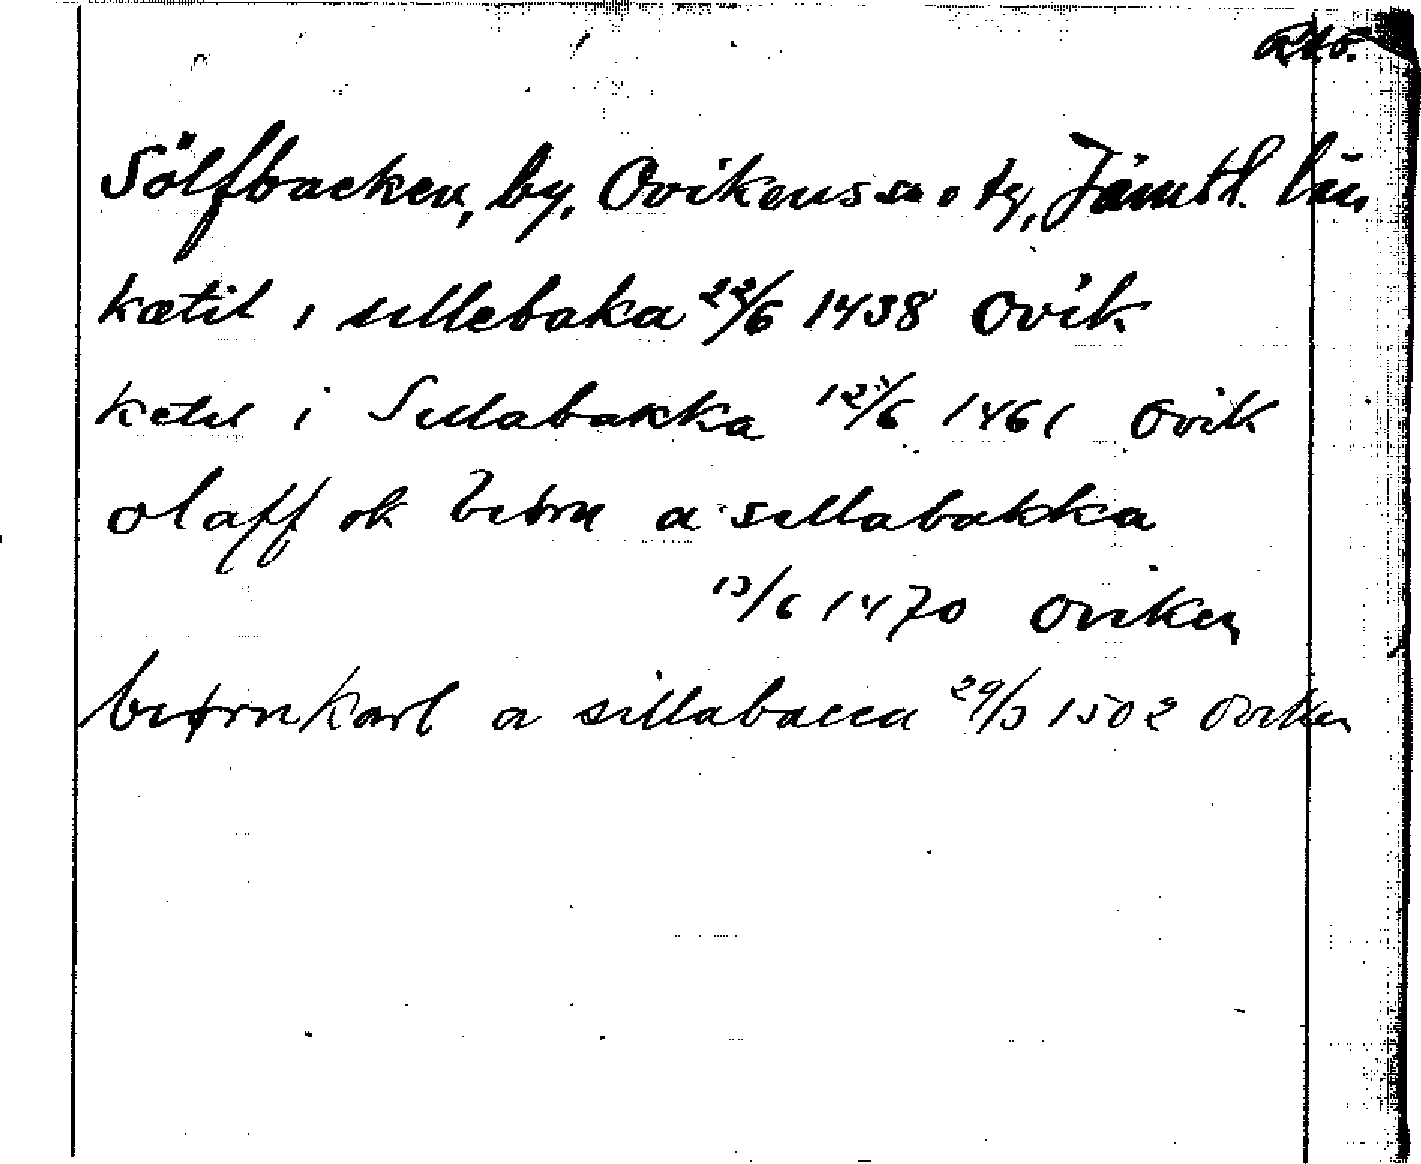 Sölfbacken, by, Ovikens sn o tg, Jämtl. län
kætil i sillebaka 22/6 1438 Ovik
ketil i Sillabakka 12/6 1461 Ovik
olaff ok biørn a sillabakka
13/6 1470 Oviken
biørn karl a sillabacca 29/3 1502 Oviken